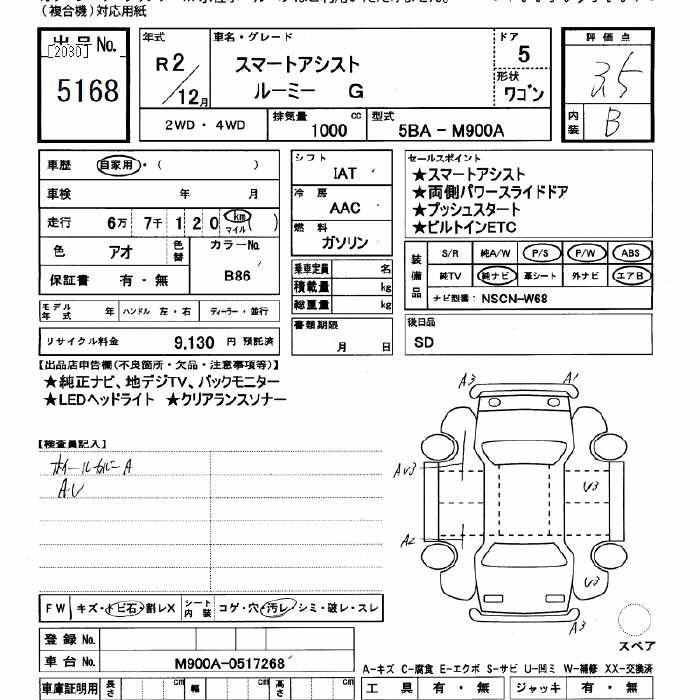 (複合機)対応用紙
出品No.
[2030]
5168
年式
R2/12月
車名・グレード
スマートアシスト
ルーミー G
ドア
5
形状
ワゴン
評価点
3.5
内装
B
2WD・4WD
排気量
1000 cc
型式
5BA-M900A
車歴 自家用・( )
車検 年 月
走行 6万 7千 1 2 0 km マイル ( )
色 アオ
色替
カラーNo.
B86
保証書 有・無
モデル年式 年
ハンドル 左・右
ディーラー・並行
リサイクル料金 9,130 円 預託済
シフト
IAT
冷房
AAC
燃料
ガソリン
乗車定員 名
積載量 kg
総重量 kg
書類期限
月 日
セールスポイント
★スマートアシスト
★両側パワースライドドア
★プッシュスタート
★ビルトインETC
装備品
S/R 純A/W P/S P/W ABS
純TV 純ナビ 革シート 外ナビ エアB
ナビ型番: NSCN-W68
後日品
SD
【出品店申告欄(不良箇所・欠品・注意事項等)】
★純正ナビ、地デジTV、バックモニター
★LEDヘッドライト ★クリアランスソナー
【検査員記入】
ホイールカバーA
AU
A3
A1
AU3
U3
A2
U3
A3
スペア
FW キズ・トビ石・割レX
シート内装 コゲ・穴・汚レ・シミ・破レ・スレ
登録No.
車台No. M900A-0517268
A-キズ C-腐食 E-エクボ S-サビ U-凹ミ W-補修 XX-交換済
車庫証明用 長さ cm 幅 cm 高さ cm
工具 有・無 ジャッキ 有・無